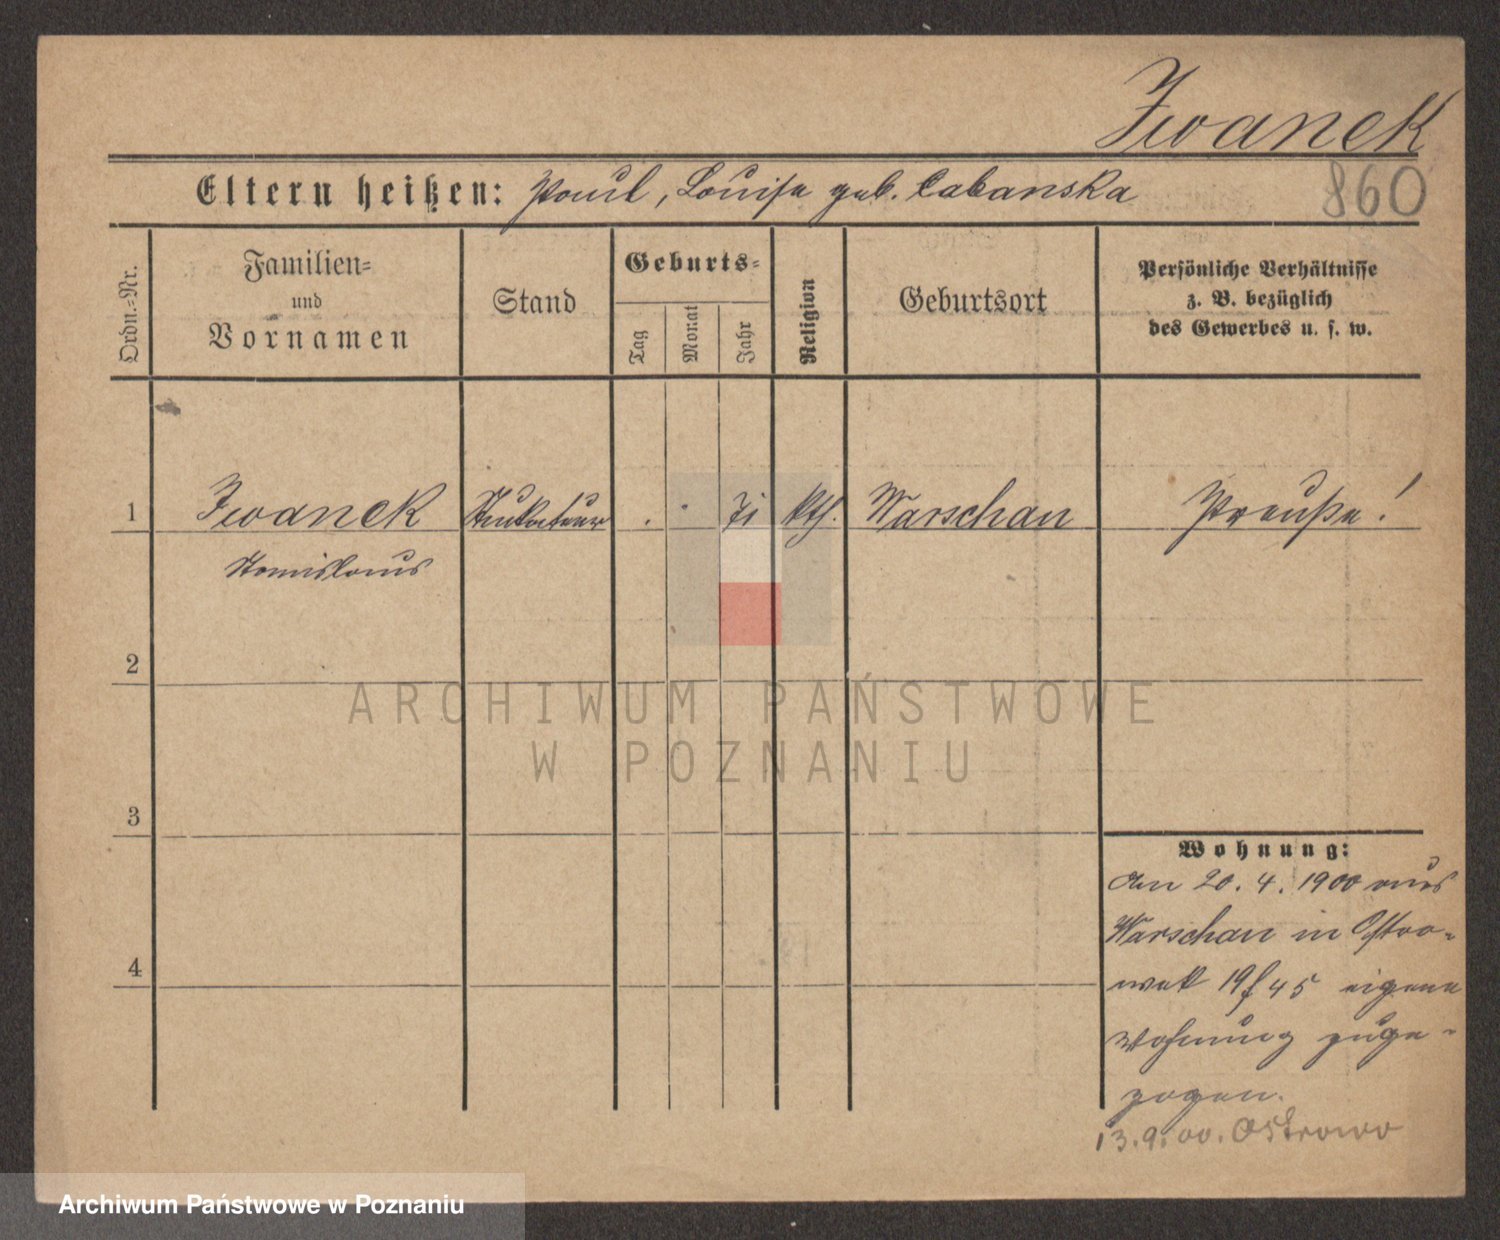 Iwanek
Eltern heißen: Paul, Louise geb. Cabanska
860
Ordn.=Nr.
Familien=
und
Vornamen
Stand
Geburts=
Tag
Monat
Jahr
Religion
Geburtsort
Persönliche Verhältnisse
z. B. bezüglich
des Gewerbes u. s. w.
1
Iwanek
Stukateur
. . 71
kth.
Warschau
Preuße!
Stanislaus
2
ARCHIWUM PAŃSTWOWE
W POZNANIU
3
Wohnung:
Am 20. 4. 1900 aus
Warschau in Ostro-
wek 19/45 eigene
4
Wohnung zuge-
zogen.
13.9.00. Ostrowo
Archiwum Państwowe w Poznaniu